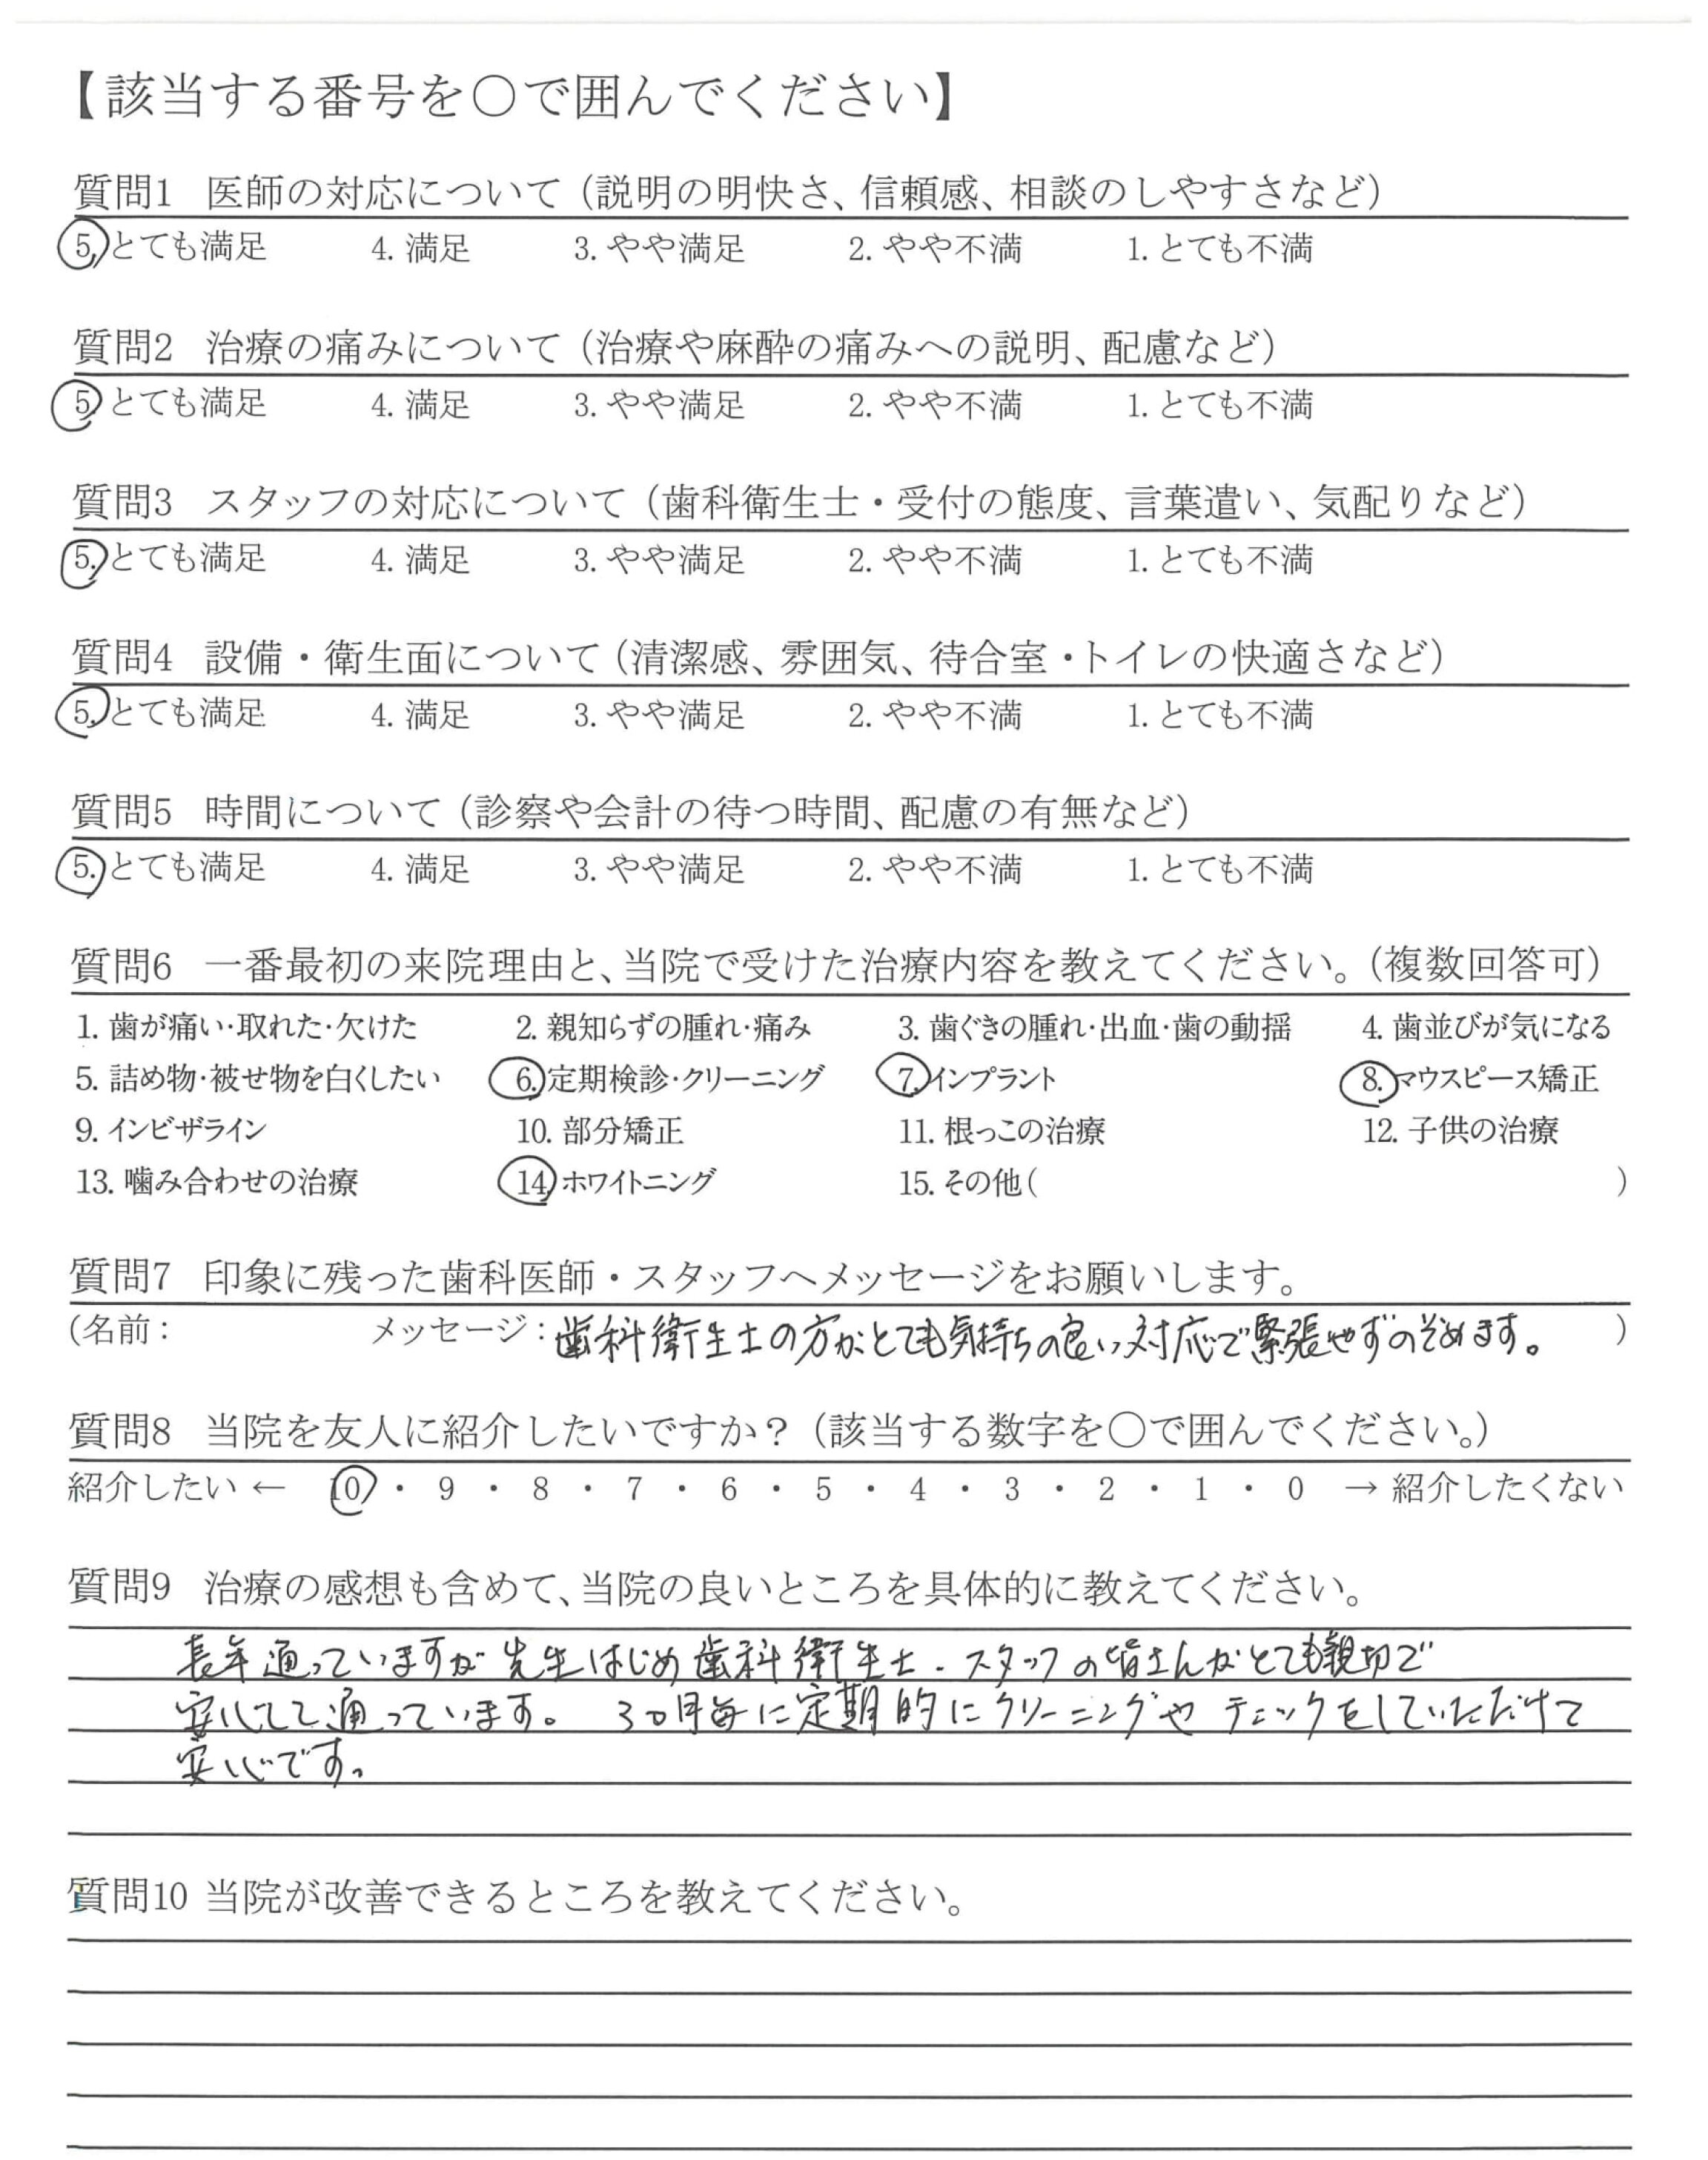 【該当する番号を〇で囲んでください】
質問1 医師の対応について（説明の明快さ、信頼感、相談のしやすさなど）
5. とても満足 4. 満足 3. やや満足 2. やや不満 1. とても不満
質問2 治療の痛みについて（治療や麻酔の痛みへの説明、配慮など）
5. とても満足 4. 満足 3. やや満足 2. やや不満 1. とても不満
質問3 スタッフの対応について（歯科衛生士・受付の態度、言葉遣い、気配りなど）
5. とても満足 4. 満足 3. やや満足 2. やや不満 1. とても不満
質問4 設備・衛生面について（清潔感、雰囲気、待合室・トイレの快適さなど）
5. とても満足 4. 満足 3. やや満足 2. やや不満 1. とても不満
質問5 時間について（診察や会計の待つ時間、配慮の有無など）
5. とても満足 4. 満足 3. やや満足 2. やや不満 1. とても不満
質問6 一番最初の来院理由と、当院で受けた治療内容を教えてください。（複数回答可）
1. 歯が痛い・取れた・欠けた 2. 親知らずの腫れ・痛み 3. 歯ぐきの腫れ・出血・歯の動揺 4. 歯並びが気になる
5. 詰め物・被せ物を白くしたい 6. 定期検診・クリーニング 7. インプラント 8. マウスピース矯正
9. インビザライン 10. 部分矯正 11. 根っこの治療 12. 子供の治療
13. 噛み合わせの治療 14. ホワイトニング 15. その他（ ）
質問7 印象に残った歯科医師・スタッフへメッセージをお願いします。
（名前： メッセージ：歯科衛生士の方がとても気持ちの良い対応で緊張せずのぞめます。）
質問8 当院を友人に紹介したいですか？（該当する数字を〇で囲んでください。）
紹介したい ← 10 ・ 9 ・ 8 ・ 7 ・ 6 ・ 5 ・ 4 ・ 3 ・ 2 ・ 1 ・ 0 → 紹介したくない
質問9 治療の感想も含めて、当院の良いところを具体的に教えてください。
長年通っていますが先生はじめ歯科衛生士・スタッフの皆さんがとても親切で
安心して通っています。 3ヶ月毎に定期的にクリーニングやチェックをしていただけて
安心です。
質問10 当院が改善できるところを教えてください。